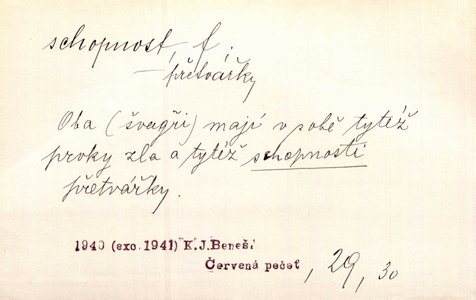 schopnost, f.
— přetvářky
Oba (švagři) mají v sobě tytéž
prvky zla a tytéž schopnosti
přetvářky.
1940 (exc. 1941) K.J.Beneš:
Červená pečeť, 29, 30